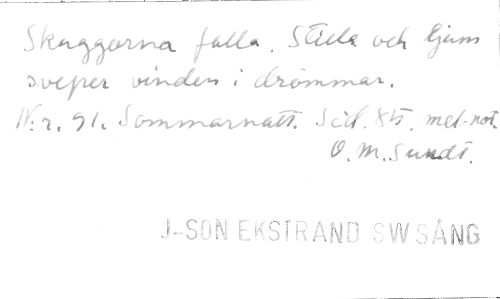 Skuggorna falla. Stilla och ljum
sveper vinden i drömmar.
N:r. 91. Sommarnatt. Sid. 85. mel.-not.
O. M. Sundt.
J-SON EKSTRAND SW SÅNG